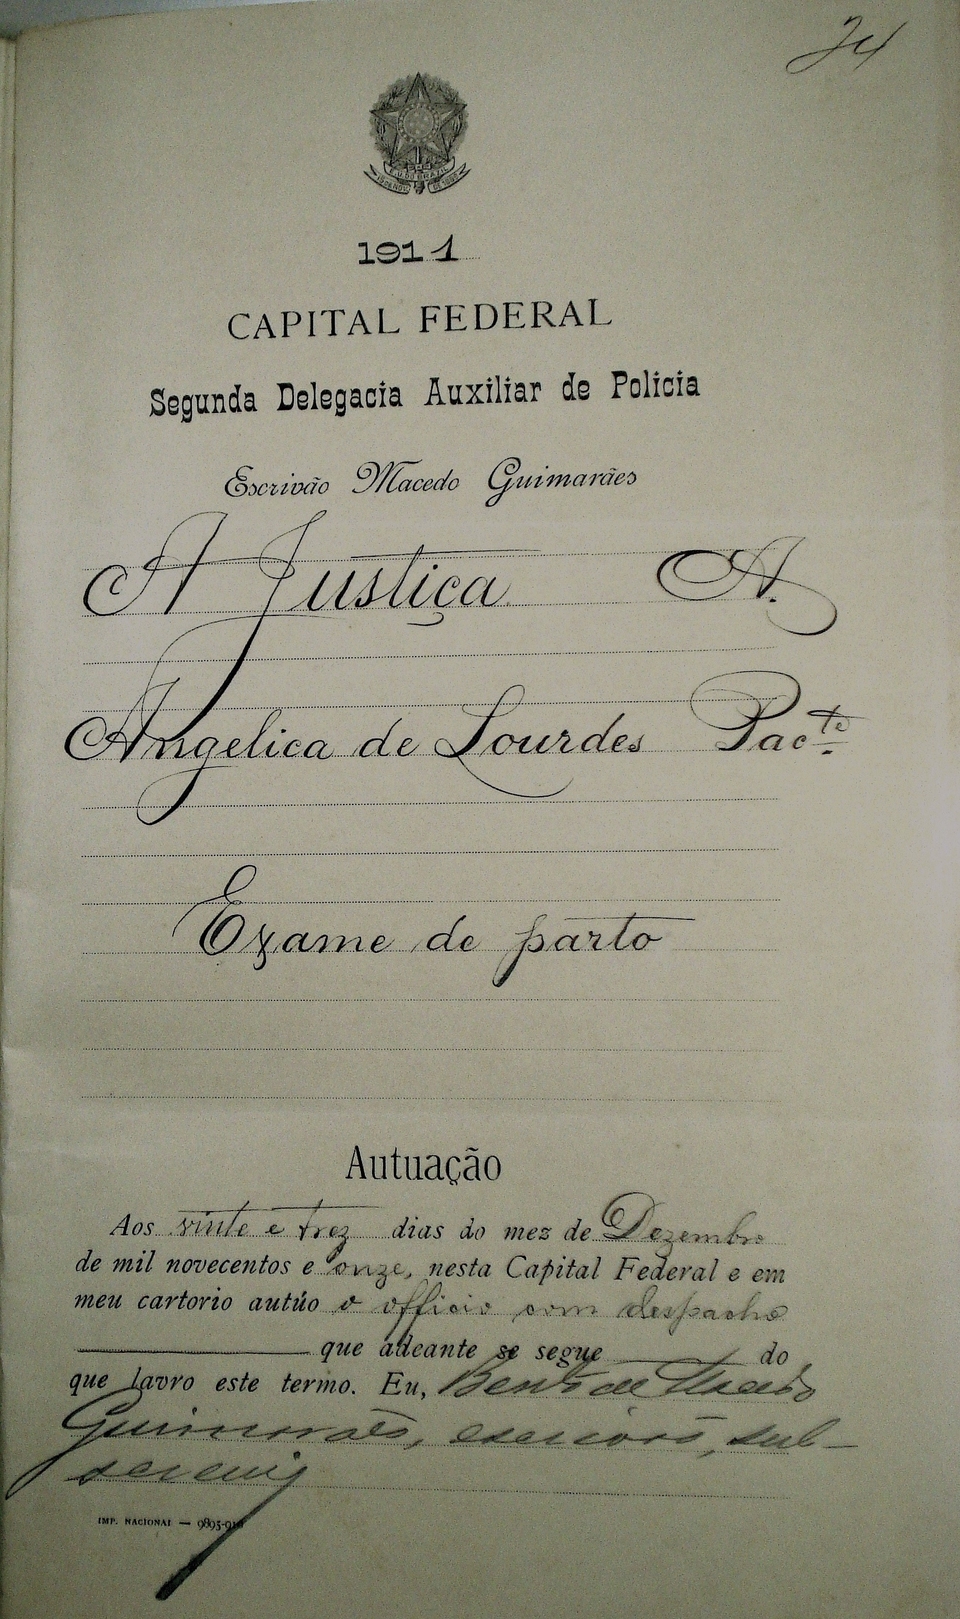 24
E.U. DO BRAZIL
15 DE NOV. DE 1889
1911
CAPITAL FEDERAL
Segunda Delegacia Auxiliar de Policia
Escrivão Macedo Guimarães
A Justiça A.
Angelica de Lourdes Pac.te
Exame de parto
Autuação
Aos vinte e trez dias do mez de Dezembro
de mil novecentos e onze, nesta Capital Federal e em
meu cartorio autúo o officio com despacho
que adeante se segue do
que lavro este termo. Eu, Bento de Macedo
Guimarães, escrivão, sub-
screvi
IMP. NACIONAL — 9895-910